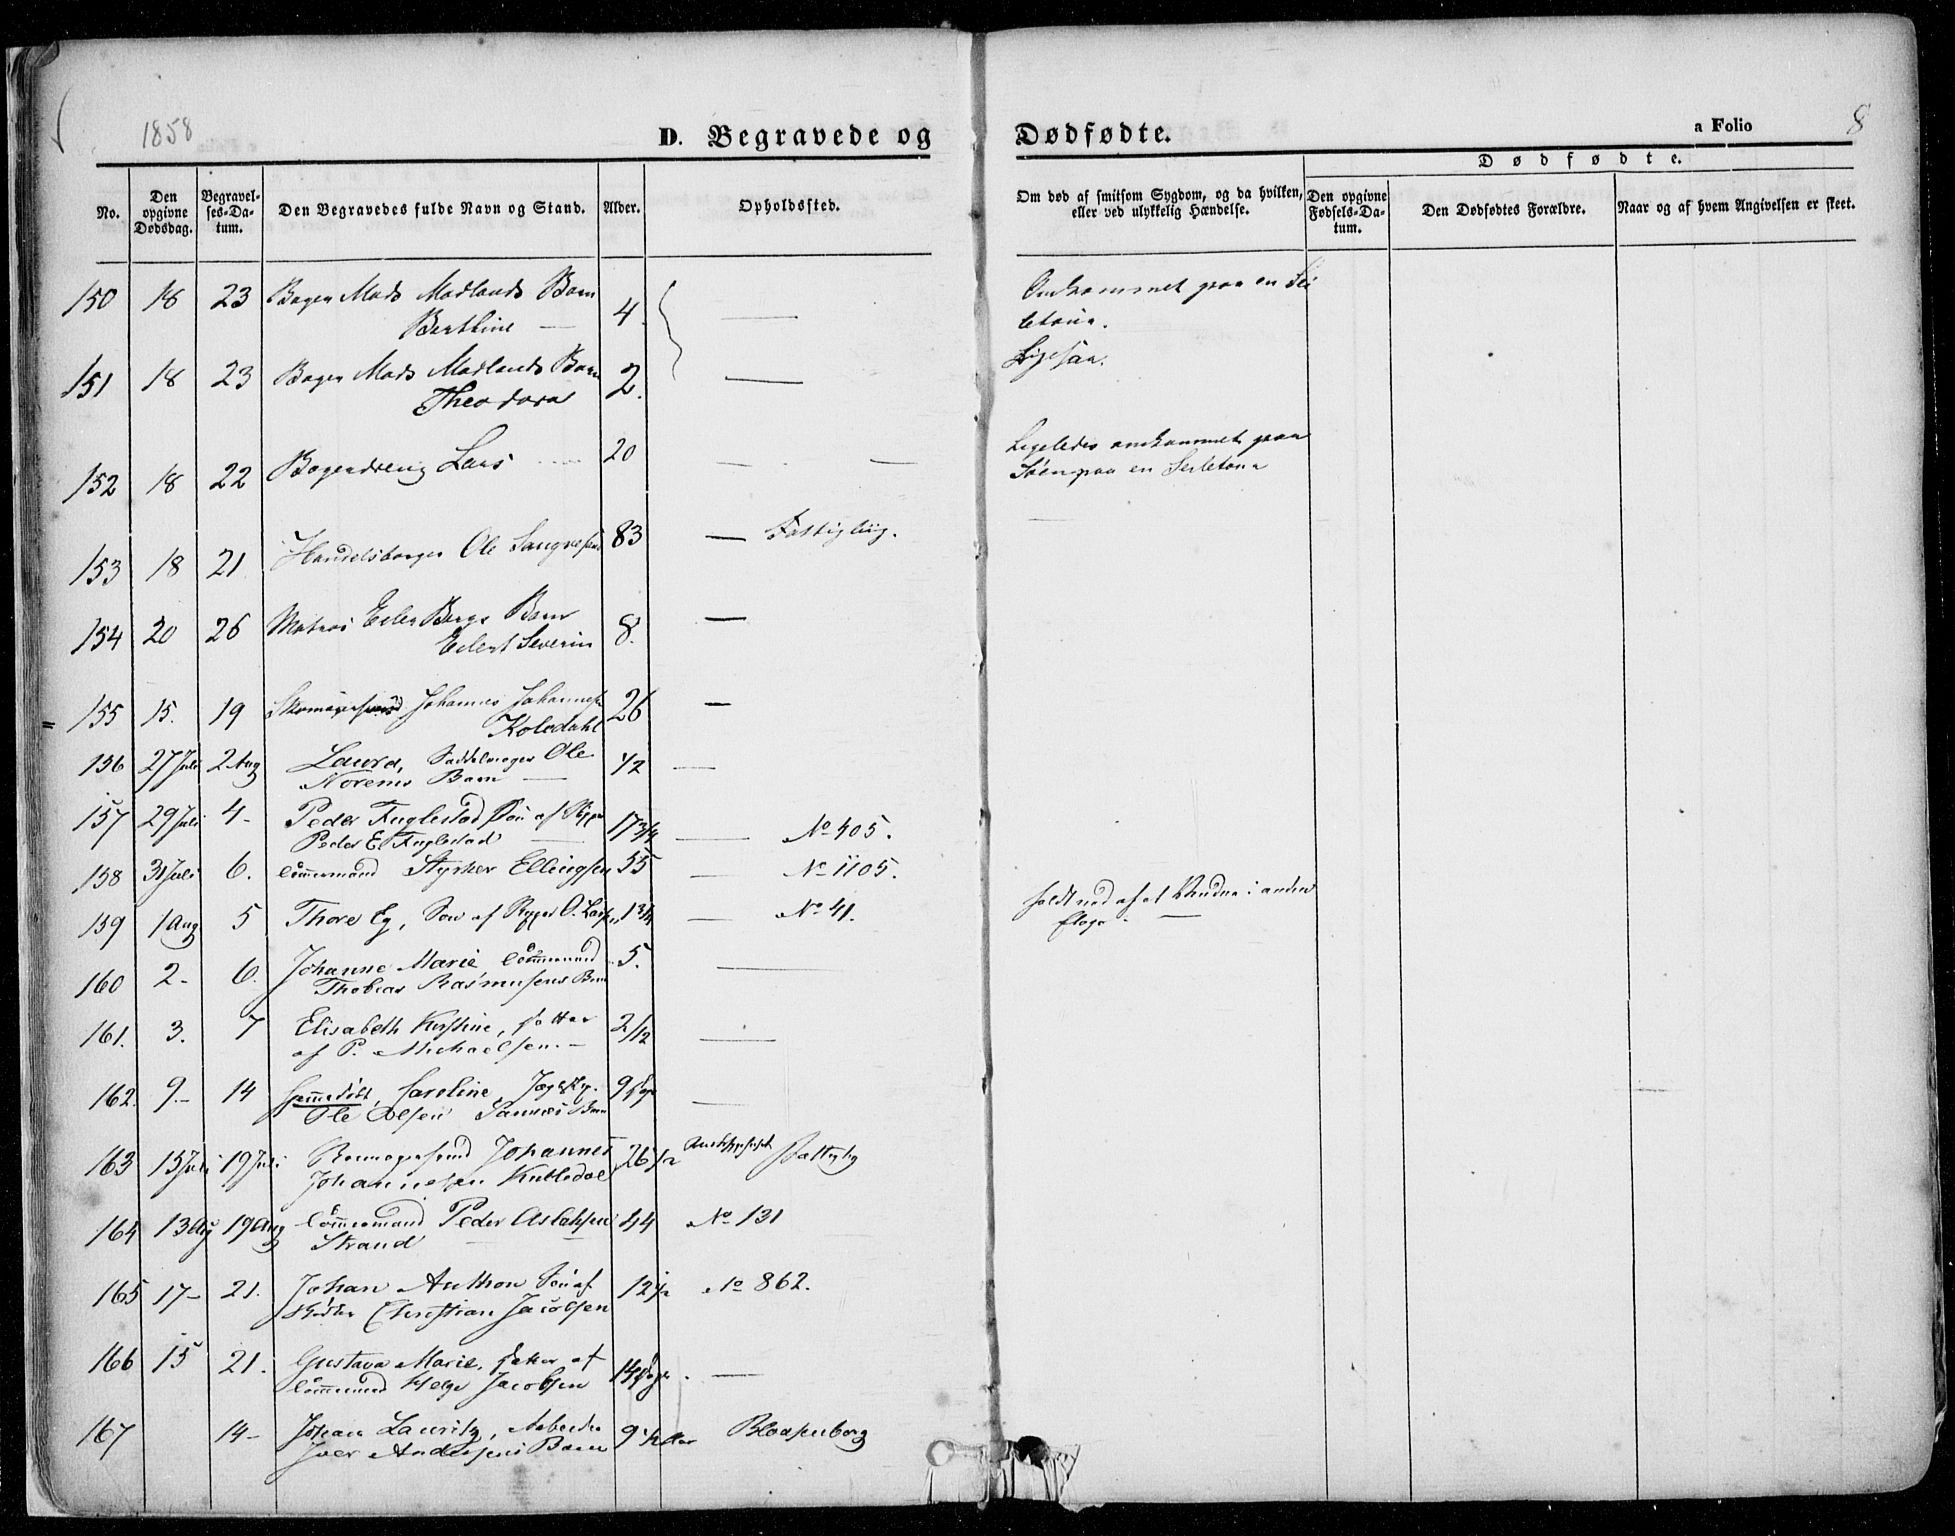 1858
D. Begravede og Dødfødte.
a Folio 8
Dødfødte.
No.
Den opgivne Dødsdag.
Begravelses-Datum.
Den Begravedes fulde Navn og Stand.
Alder.
Opholdssted.
Om død af smitsom Sygdom, og da hvilken, eller ved ulykkelig Hændelse.
Den opgivne Fødsels-Datum.
Den Dødfødtes Forældre.
Naar og af hvem Angivelsen er skeet.
150 18 23 Bager Mads Madlands Barn 4. — Omkommet paa en
Berthine —
151 18 23 Bager Mads Madlands Barn 2. — Ligesaa.
Theodora
152 18 22 Bagerdreng Lars 20 — — Ligeledes omkommet paa
Søen paa en
153 18 21 Handelsborger Ole 83 — Fattighuus.
154 20 26 Matros Eiler Bergs Barn 8. —
Eilert Severin
155 15. 19 Johannes Johannes 26 —
156 27 Juli 2 Aug Laura, Saddelmager Ole —
Norems Barn —
157 29 Juli 4 - Peder Fuglestad Søn af 17 3/4 — No 405.
Peder E. Fuglestad —
158 31 Juli 6. Tømmermand Styrker Ellingsen 55 — No 1105.
159 1 Aug 5 Thore Eg, Søn af O. — No 41. faldt ned af et Vindue i anden
Etage. —
160 2 - 6. Johanne Marie Tømmermand 5. —
Thobias Rasmusens Barn
161. 3. 7 Elisabeth Kirstine, Datter 2/12 —
af P. Michaelsen. —
162. 9. - 14 Hjemmedøbt, Caroline, 9 Dage —
Ole Olsen Barn
163 15 Juli 19 Juli Johannes 26 1/2
Johannesen
164 13 Aug 19 Aug Tømmermand Peder Aslaksen 44 No 131
Strand
165 17 - 21. Johan Anthon Søn af 12 No 862.
Christian Jacobsen
166 15 21. Gustava Marie, Datter af 14 Dage. —
Tømmermand Helge Jacobsen
167 14 - Johan Lauritz, Arbeider 9 Blaasenborg
Iver Andersens Barn